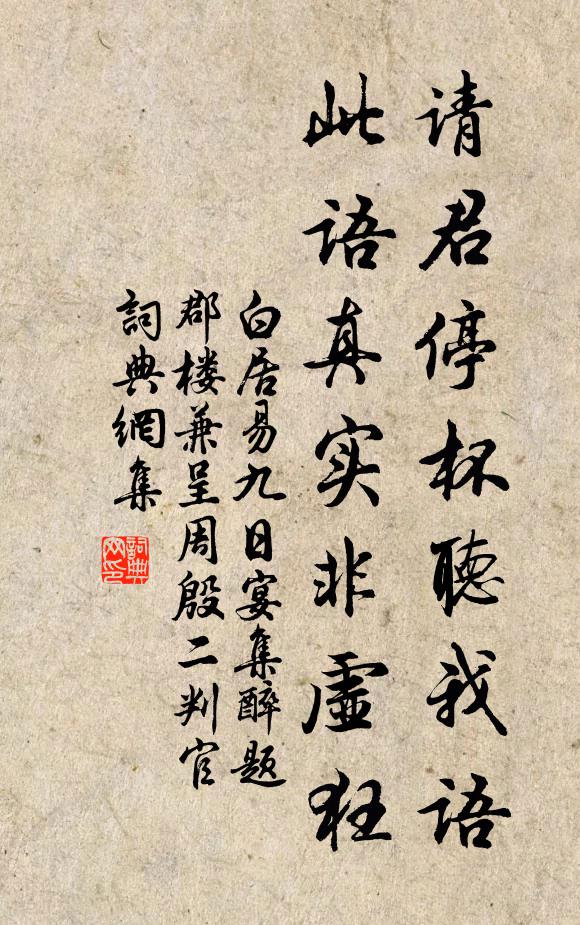 请君停杯聽我语
此语真实非虛狂
白居易九日宴集醉题
郡楼兼呈周殷二判官
詞典網集
詞典網印